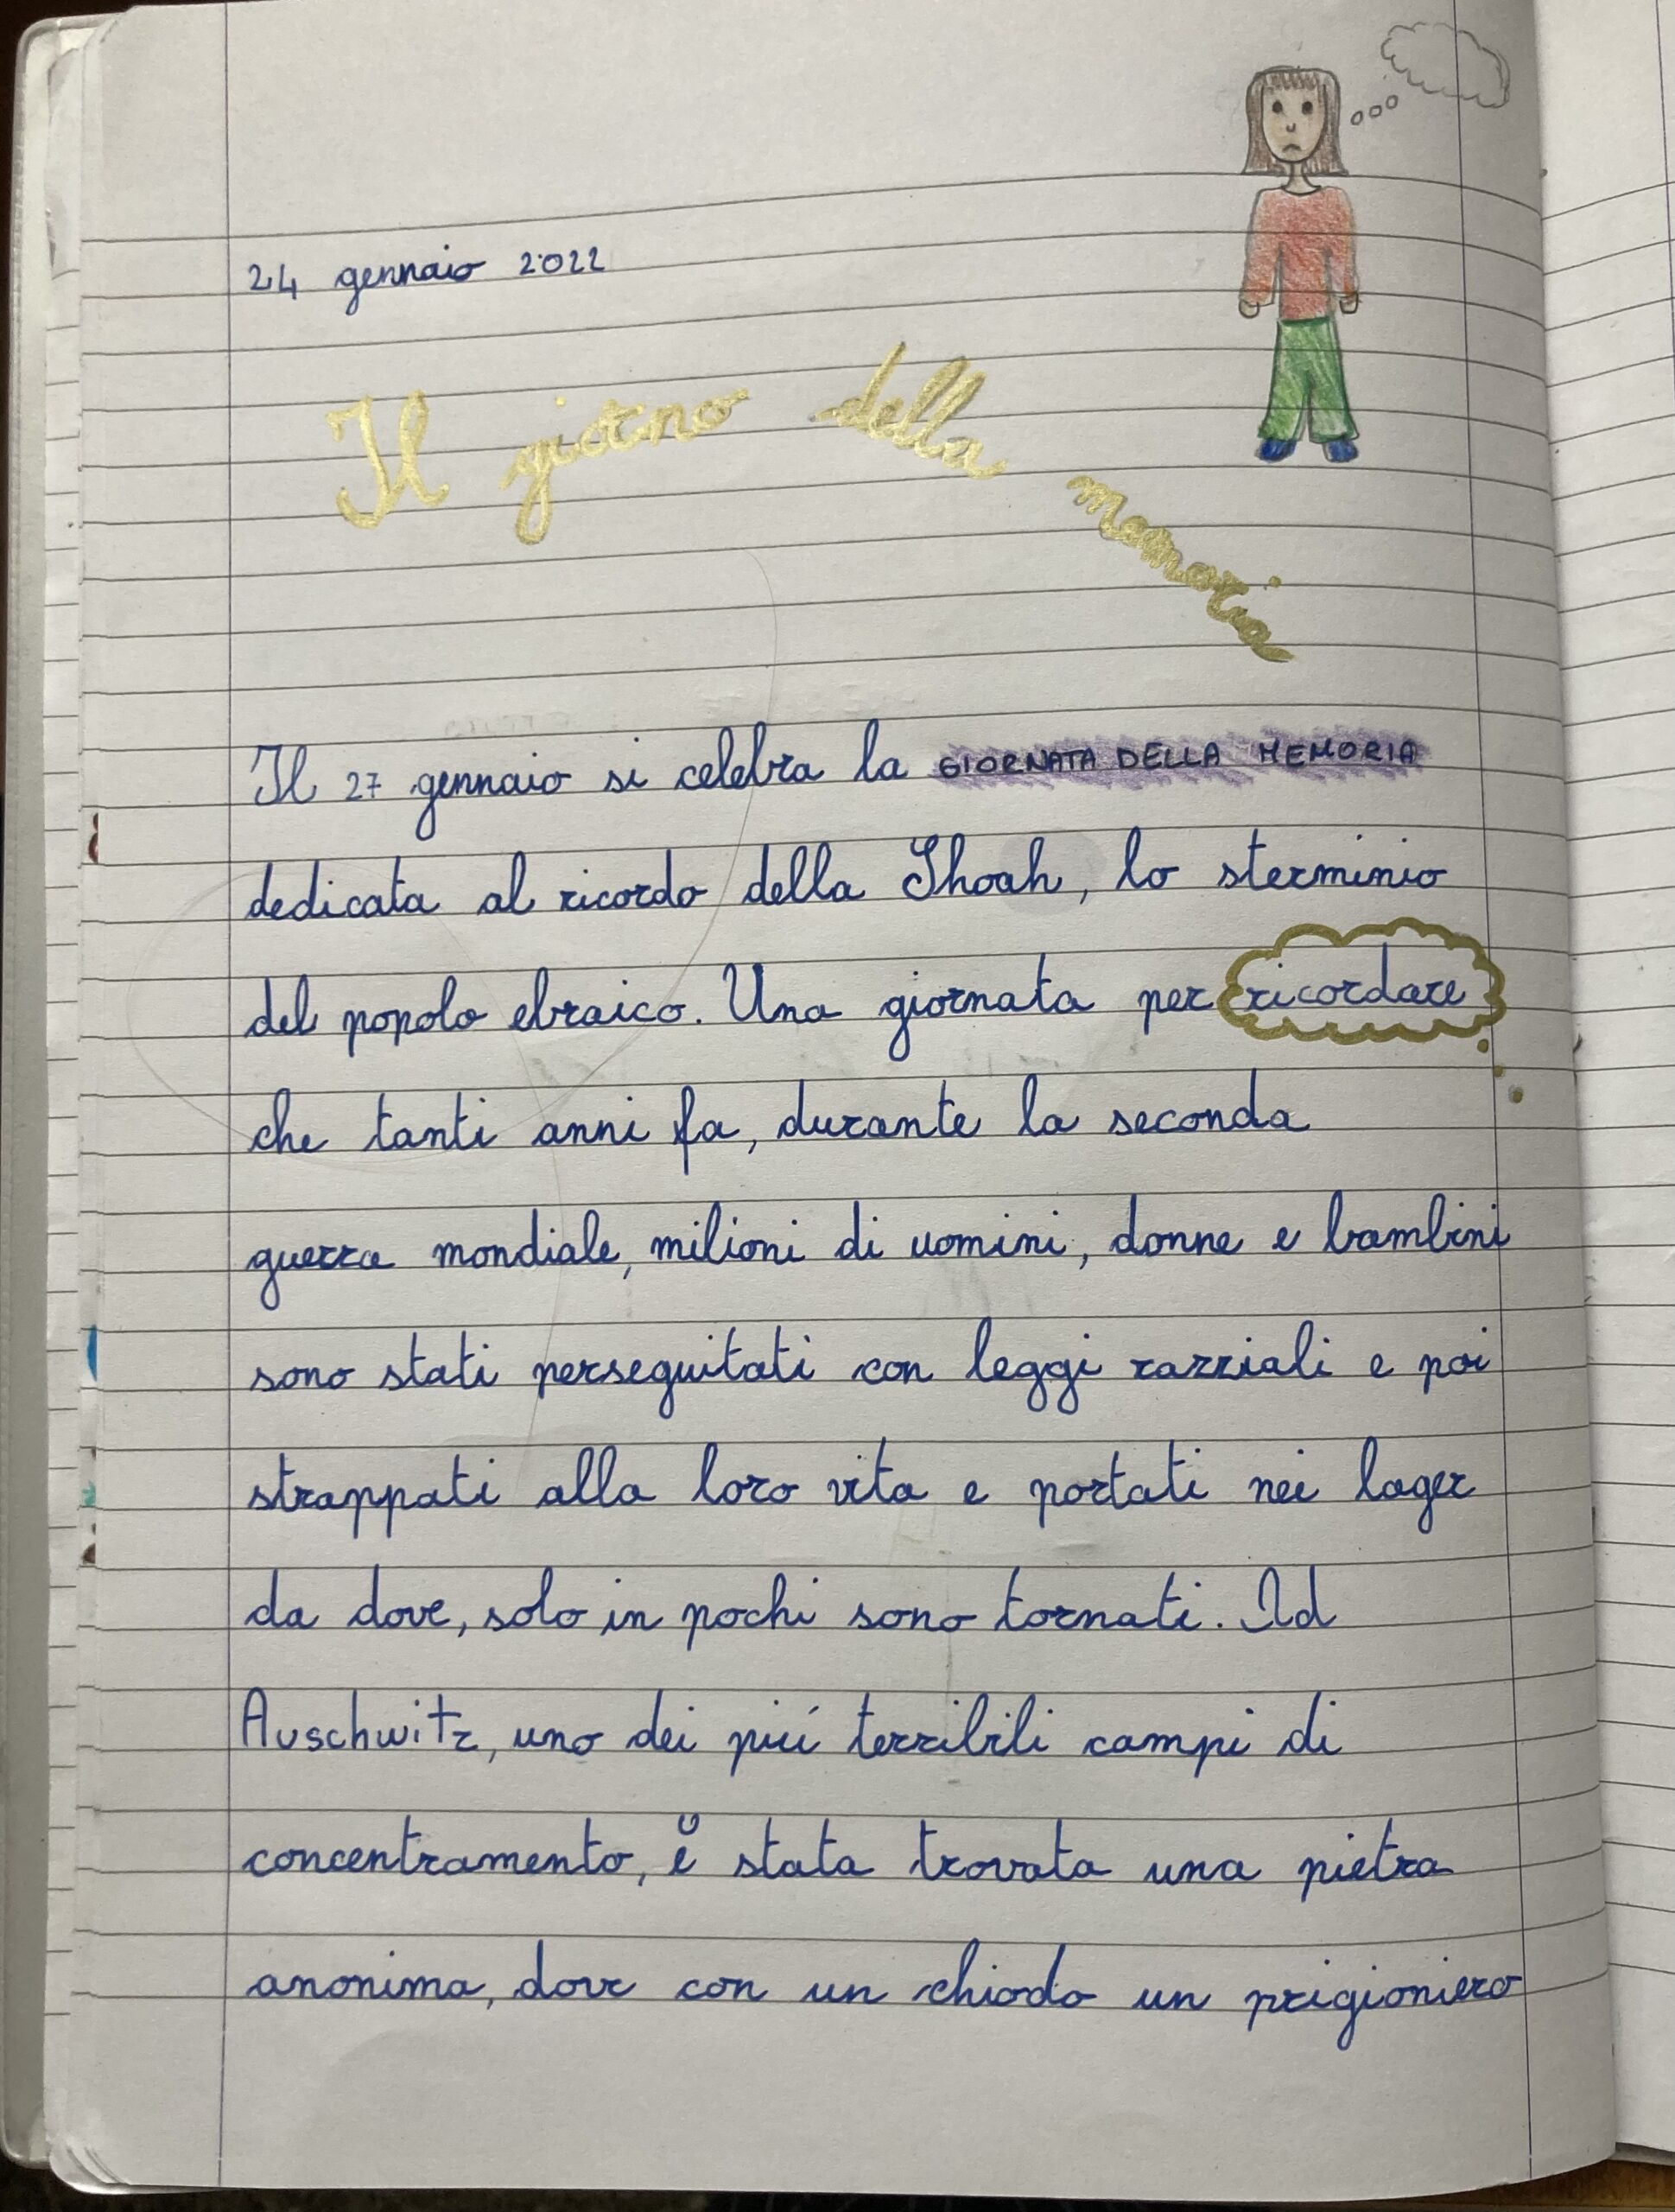 24 gennaio 2022
Il giorno della memoria
Il 27 gennaio si celebra la GIORNATA DELLA MEMORIA
dedicata al ricordo della Shoah, lo sterminio
del popolo ebraico. Una giornata per ricordare
che tanti anni fa, durante la seconda
guerra mondiale, milioni di uomini, donne e bambini
sono stati perseguitati con leggi razziali e poi
strappati alla loro vita e portati nei lager
da dove, solo in pochi sono tornati. Ad
Auschwitz, uno dei piú terribili campi di
concentramento, è stata trovata una pietra
anonima, dove con un chiodo un prigioniero